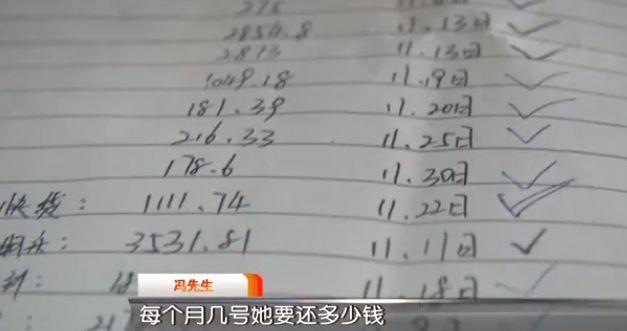 2854.8 11.13日
2873 11.13日
1049.18 11.19日
181.39 11.20日
216.33 11.25日
178.6 11.30日
快 : 1111.74 11.22日
: 3531.81 11.11日
: 18 11.18日
冯先生
每个月几号她要还多少钱